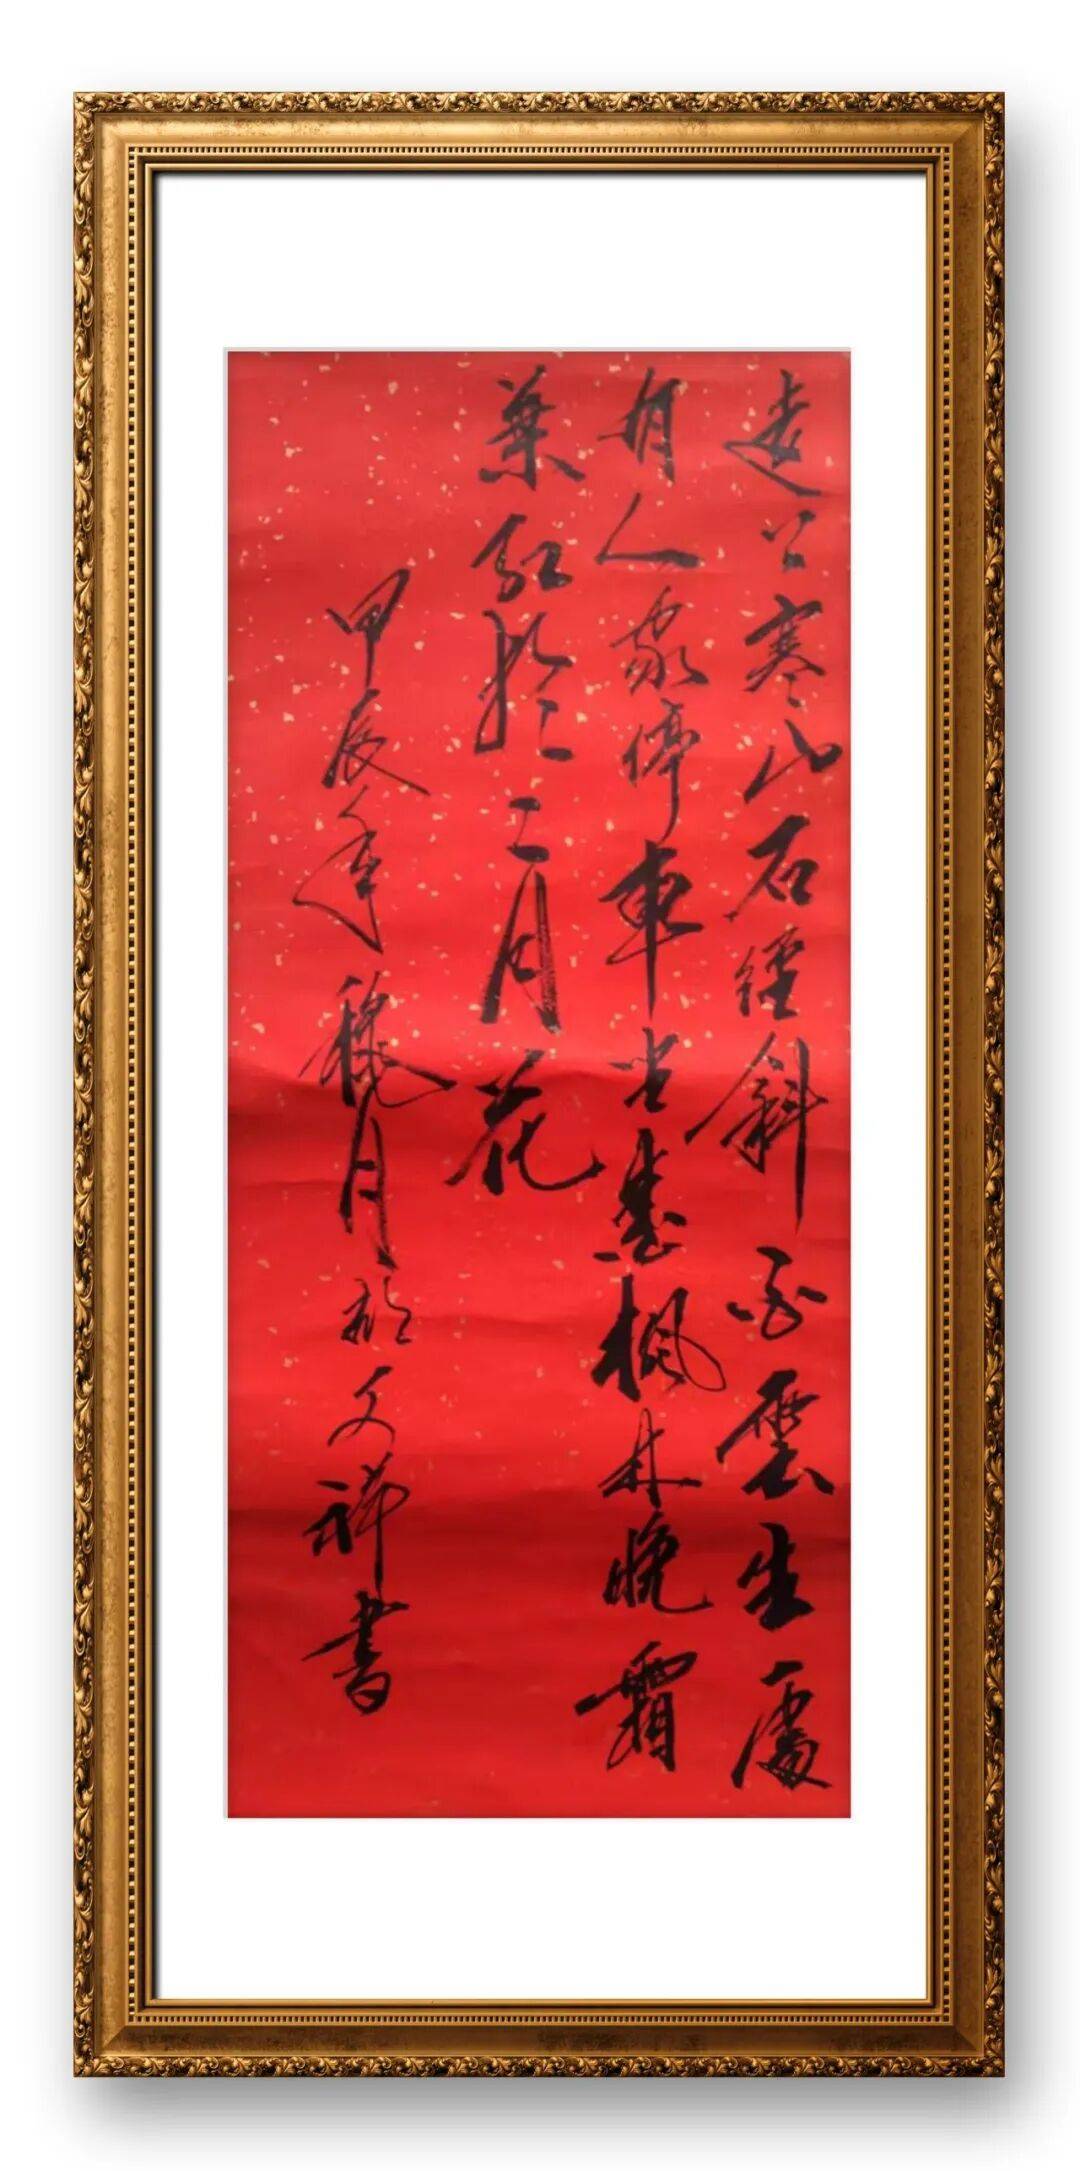 遠上寒山石徑斜白雲生處
有人家停車坐愛楓林晚霜
葉紅於二月花
甲辰年秋月於文祥書